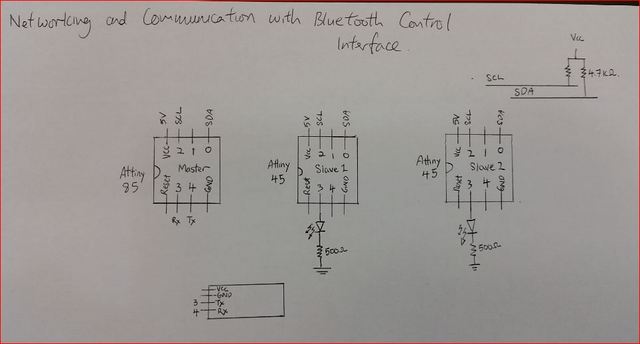 Networking and Communication with Bluetooth Control
Interface.
Vcc
4.7KΩ
SCL
SDA
5V SCL SDA
Vcc 2 1 0
Attiny
85
Master
Reset 3 4 GND
Rx Tx
5V SCL SDA
Vcc 2 1 0
Attiny
45
Slave 1
Reset 3 4 GND
500Ω
5V SCL SDA
Vcc 2 1 0
Attiny
45
Slave 2
Reset 3 4 GND
500Ω
Vcc
GND
3 Tx
4 Rx